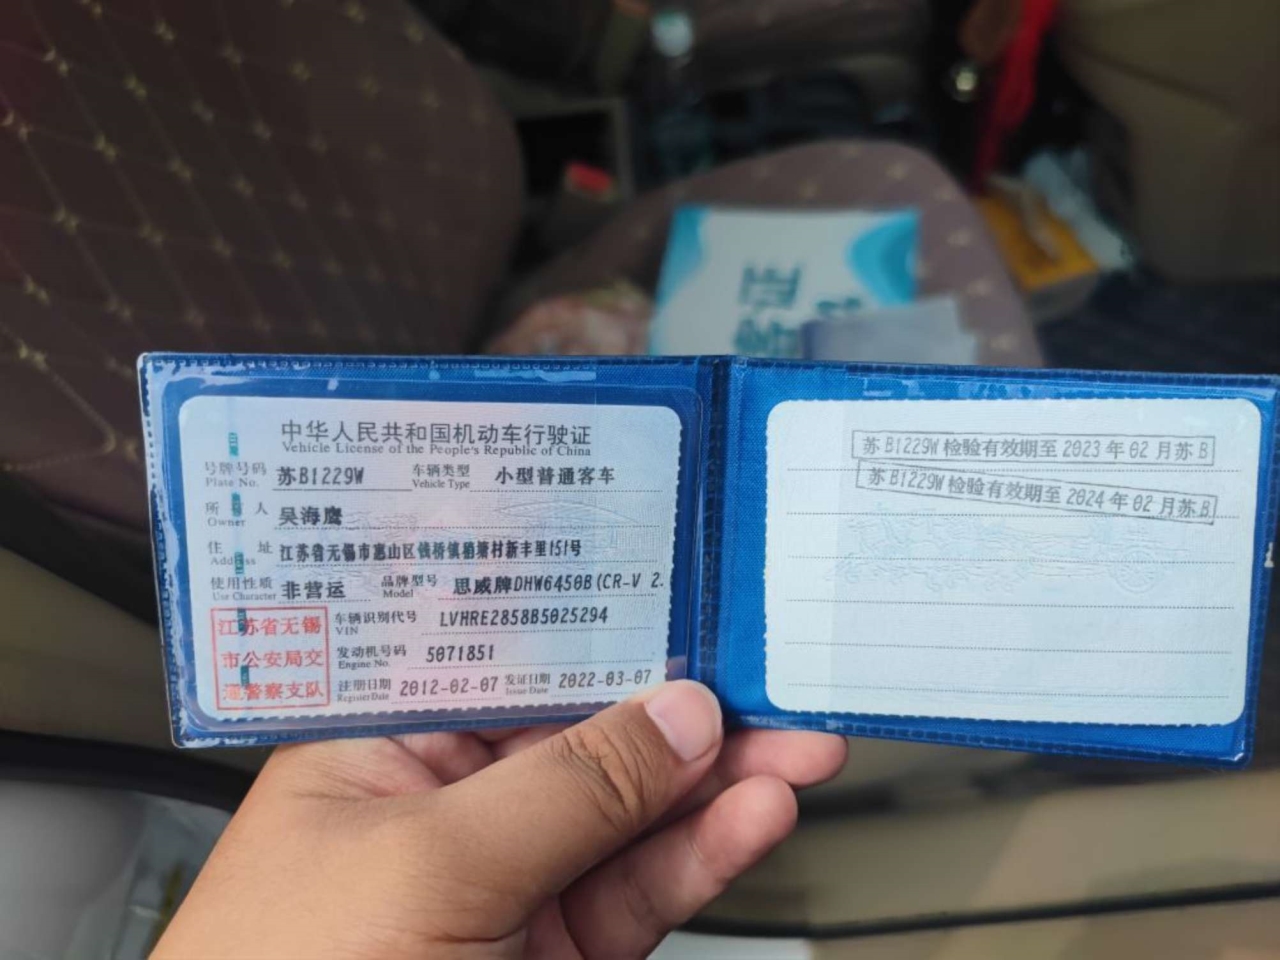 中华人民共和国机动车行驶证
Vehicle License of the People's Republic of China
号牌号码 苏B1229W 车辆类型 小型普通客车
Plate No. Vehicle Type
所有人 吴海鹰
Owner
住址 江苏省无锡市惠山区钱桥镇稍塘村新丰里151号
Address
使用性质 非营运 品牌型号 思威牌DHW6450B(CR-V 2.
Use Character Model
江苏省无锡
市公安局交
通警察支队
车辆识别代号 LVHRE2858B5025294
VIN
发动机号码 5071851
Engine No.
注册日期 2012-02-07 发证日期 2022-03-07
Register Date Issue Date
苏B1229W 检验有效期至 2023 年 02 月苏 B
苏B1229W 检验有效期至 2024 年 02 月苏 B
证